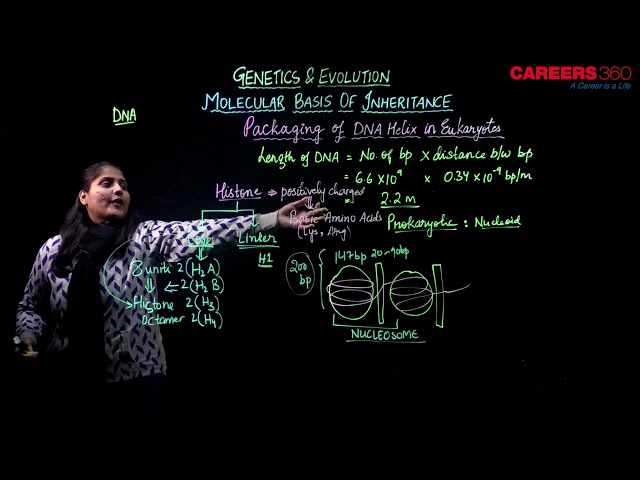 CAREERS360
A Career is a Life
GENETICS & EVOLUTION
MOLECULAR BASIS OF INHERITANCE
DNA
PACKAGING OF DNA HELIX IN EUKARYOTES
Length of DNA = No. of bp X distance b/w bp
= 6.6 X 10⁹ X 0.34 X 10⁻⁹ bp/m
= 2.2 m
Histone ⇒ positively charged
Basic Amino Acids
(Lys, Arg)
Prokaryotic : Nucleoid
Core
Linker
H1
8 units 2(H₂A)
⇐ 2(H₂B)
Histone 2(H₃)
Octamer 2(H₄)
147bp 20-90bp
200 bp
NUCLEOSOME